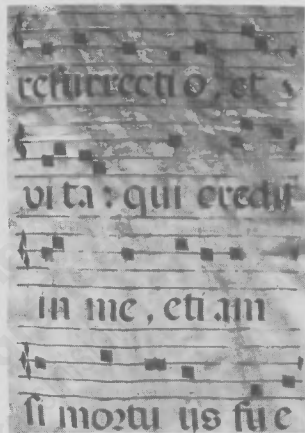 resurrectio, et
vita: qui credit
in me, etiam
si mortuus fue